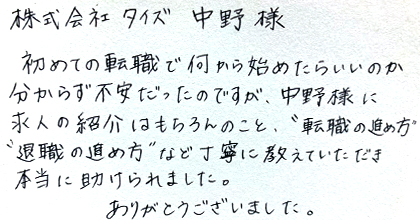 株式会社タイズ 中野様
初めての転職で何から始めたらいいのか
分からず不安だったのですが、中野様に
求人の紹介はもちろんのこと、〝転職の進め方〟
〝退職の進め方〟など丁寧に教えていただき
本当に助けられました。
ありがとうございました。